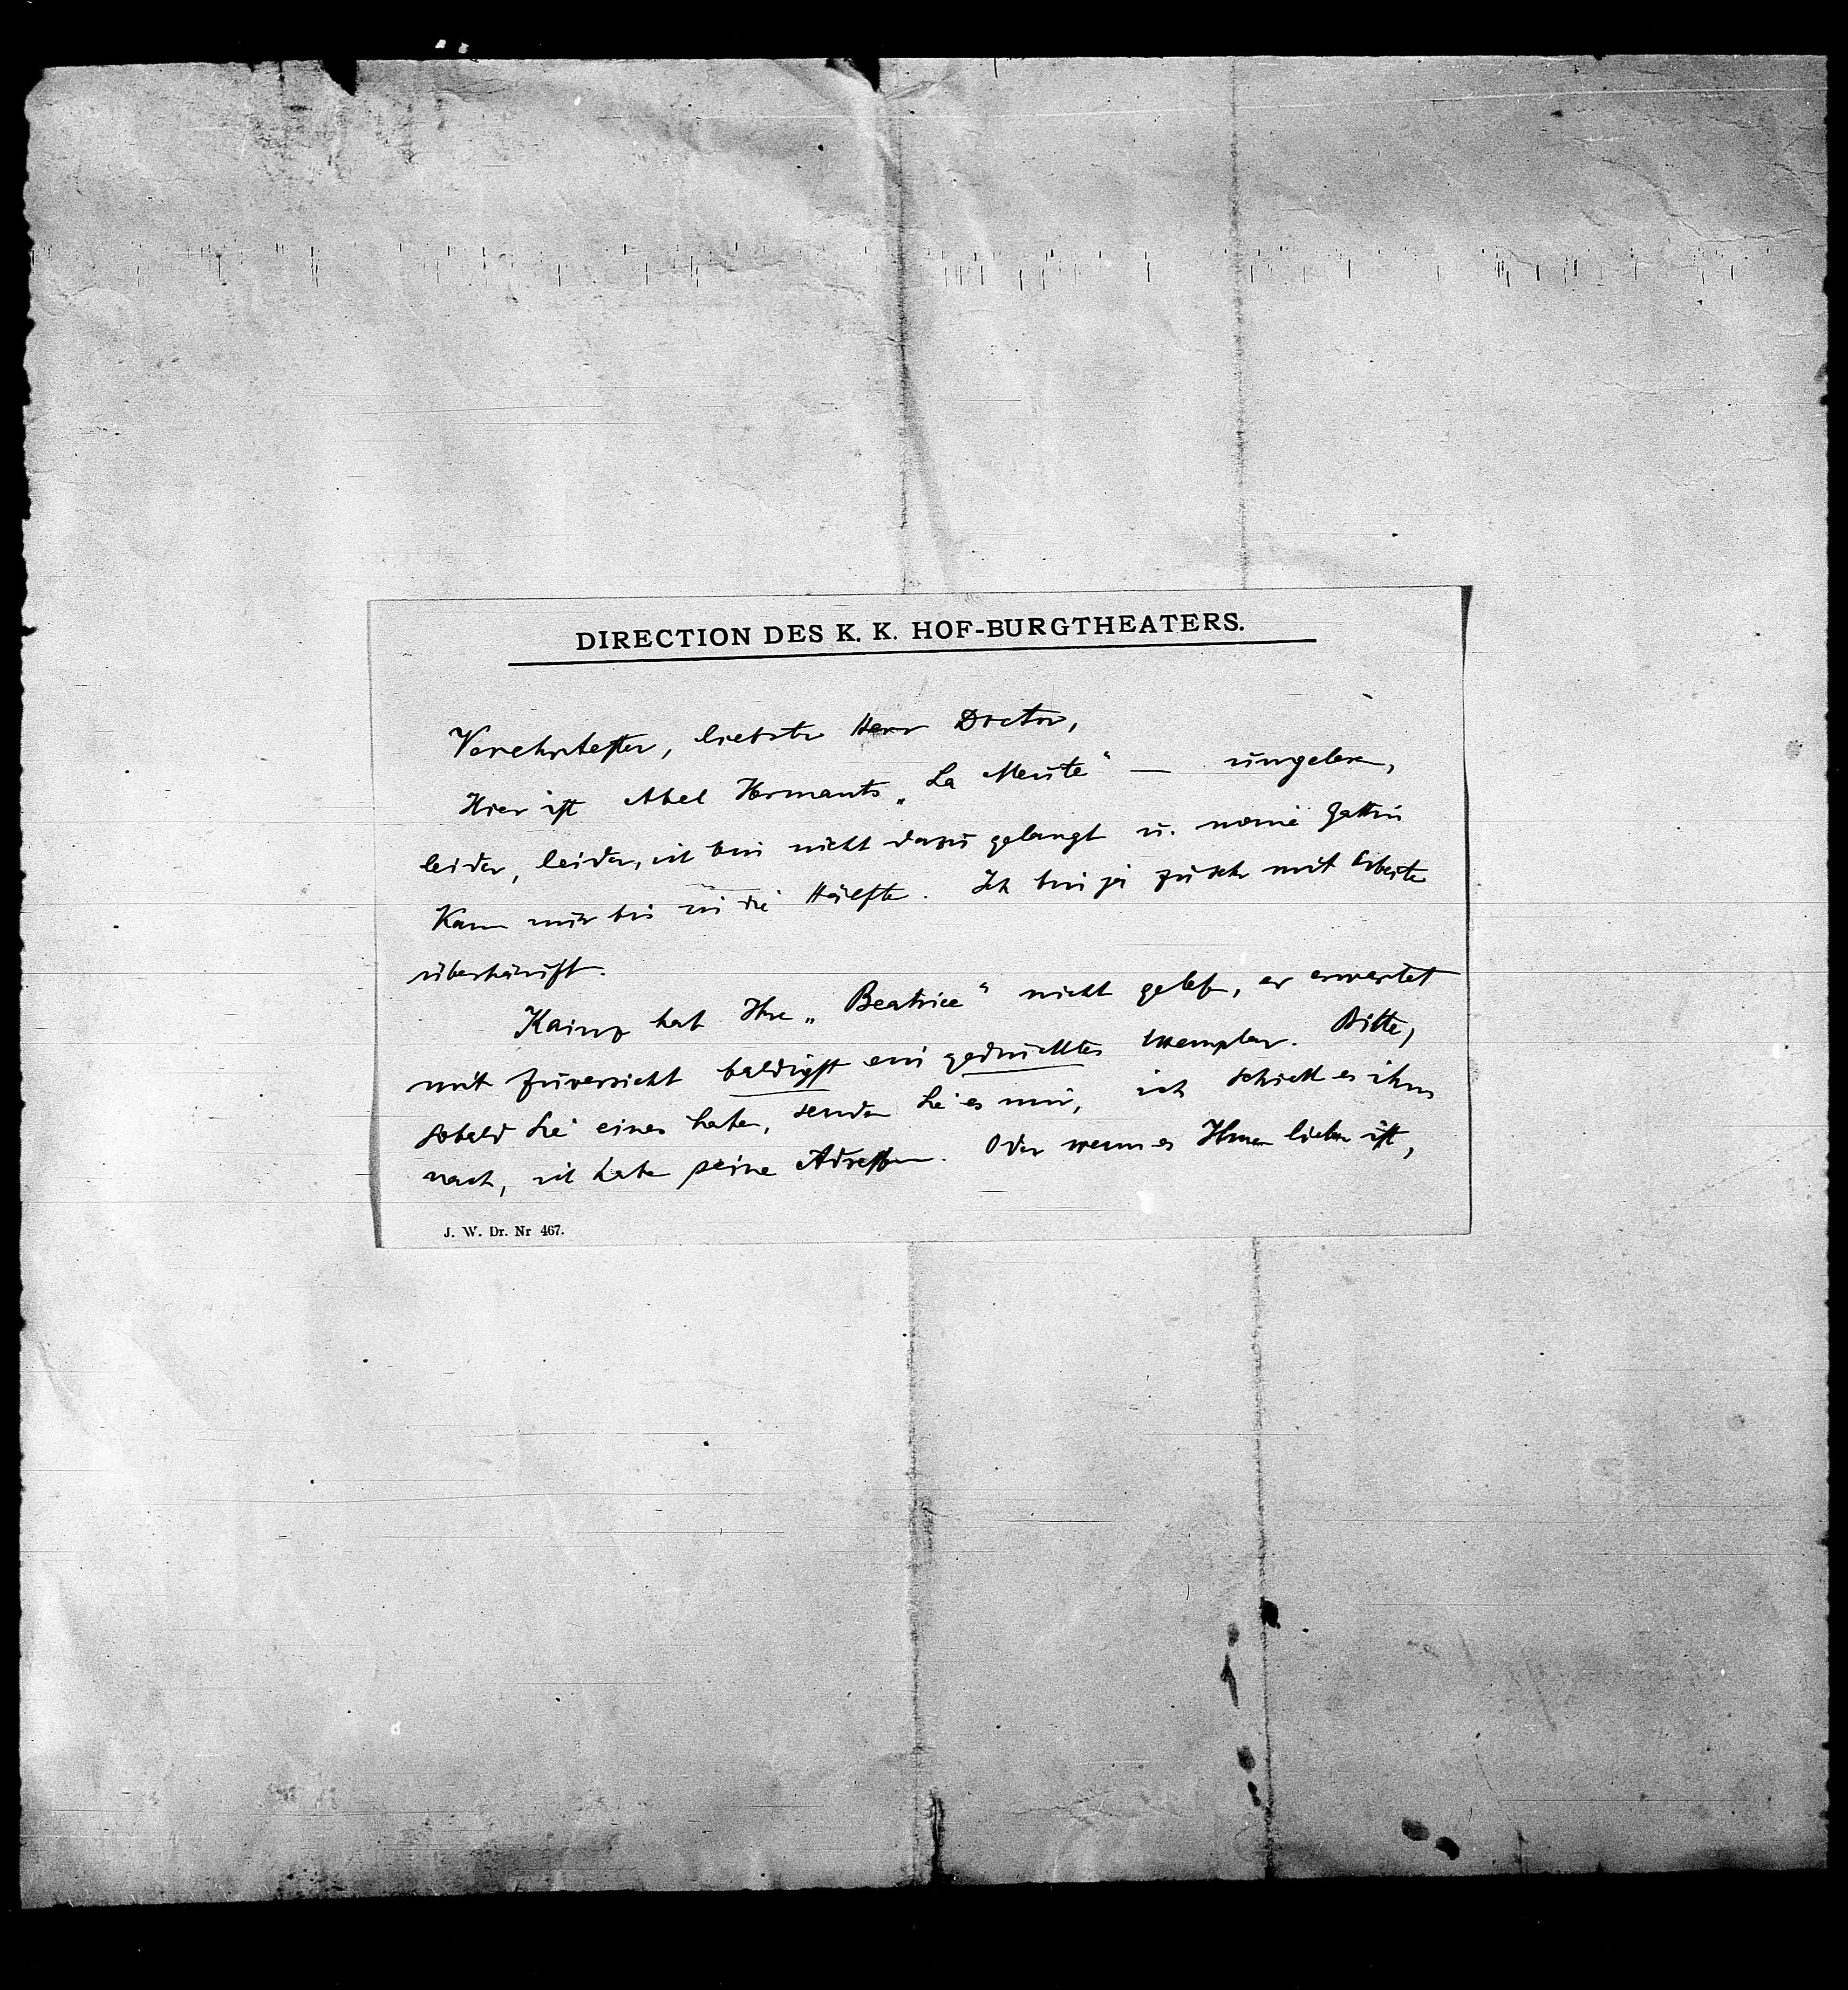 DIRECTION DES K. K. HOF-BURGTHEATERS.
Verehrtester, liebster Herr Doctor,
Hier ist Abel Hermants „La Meute“ — ungelesen,
leider, leider, ich bin nicht dazu gelangt u. meine Gattin
kam nur bis in die Hälfte. Ich bin ja zu sehr mit Arbeiten
überhäuft.
Kainz hat Ihre „Beatrice“ nicht gelesen, er erwartet
mit Zuversicht baldigst ein gedrucktes Exemplar. Bitte,
sobald Sie eines haben, senden Sie es mir, ich schick es ihm
nach, ich habe seine Adressen. Oder wenn es Ihnen lieber ist,
J. W. Dr. Nr 467.